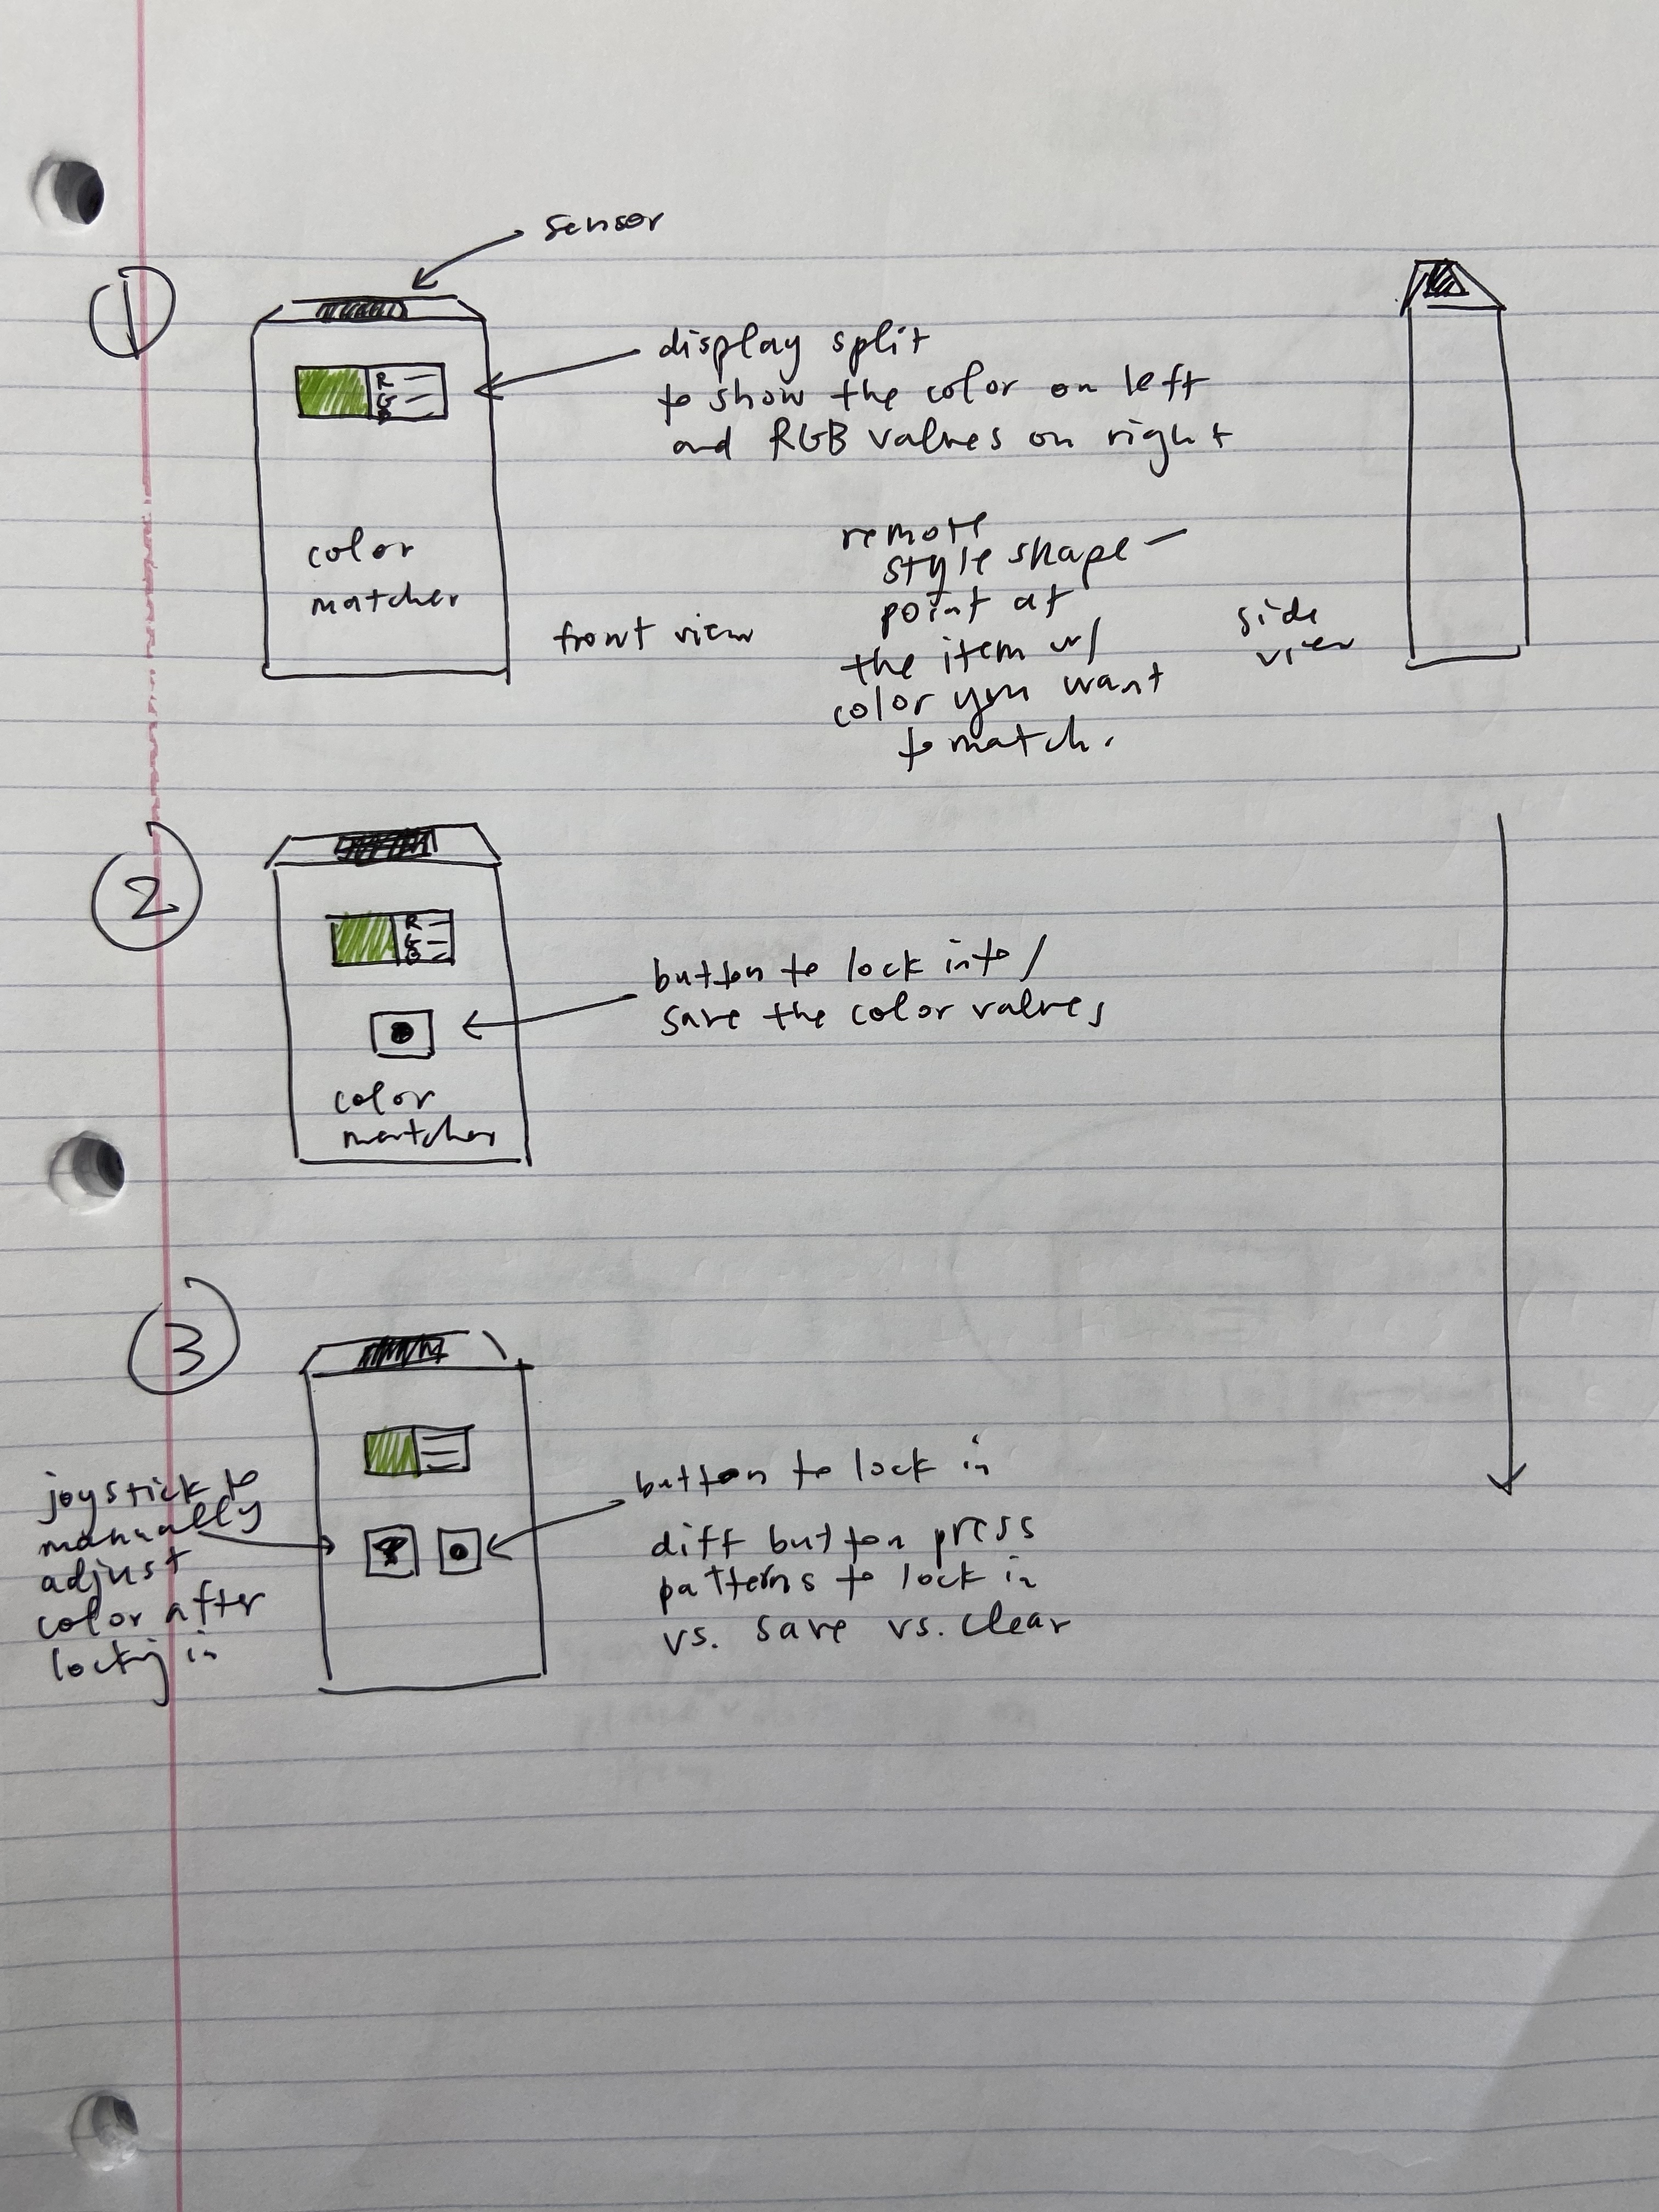 1
sensor
R
G
B
display split
to show the color on left
and RGB values on right
color
matcher
front view
remote
style shape –
point at
the item w/
color you want
to match.
side
view
2
R
G
B
button to lock into/
save the color values
color
matcher
3
joystick to
manually
adjust
color after
locking in
button to lock in
diff button press
patterns to lock in
vs. save vs. clear